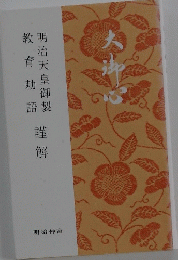 大御心
明治天皇御製
教育勅語
謹解
明治神宮